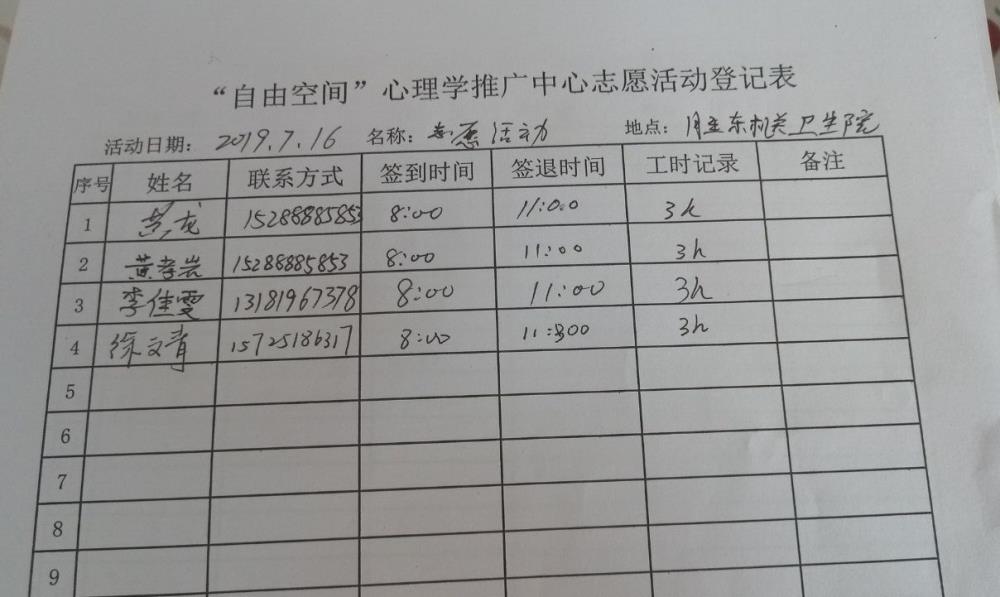 “自由空间”心理学推广中心志愿活动登记表
活动日期： 2019.7.16 名称： 志愿活动 地点： 东机关卫生院
序号 姓名 联系方式 签到时间 签退时间 工时记录 备注
1 黄龙 15288885853 8:00 11:00 3h
2 黄孝岩 15288885853 8:00 11:00 3h
3 李佳雯 13181967378 8:00 11:00 3h
4 徐文青 15725186317 8:00 11:300 3h
5
6
7
8
9